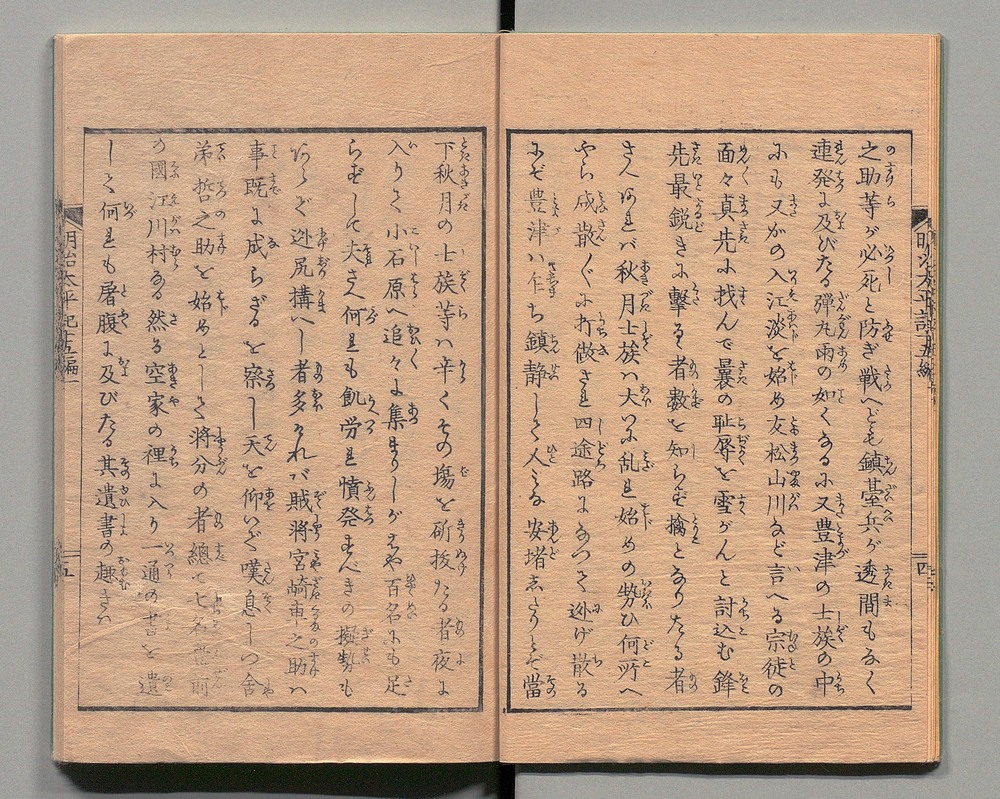 之助等が必死と防ぎ戦へども鎮䑓兵が透間もなく
連発に及びたる弾丸雨の如くなるに又豊津の士族の中
にも又かの入江淡を始め友松山川など言へる宗徒の
面々真先に找んで曩の恥辱を雪がんと討込む鋒
先最鋭きに撃るゝ者数を知らず擒となりたる者
さへあれバ秋月士族ハ大いに乱れ始めの勢ひ何所へ
やら成散々に打做され四途路になつて迯げ散る
にぞ豊津ハ乍ち鎮静して人みな安堵したりとぞ當
下秋月の士族等ハ辛くその塲を斫抜たる者夜に
入りて小石原へ追々に集まりしがはや百名にも足
らずして夫さへ何れも飢労れ憤発すべきの擬勢も
あらで迯尻構へし者多かれバ賊将宮崎車之助ハ
事既に成らざるを察し天を仰いで嘆息しつ舎
弟哲之助を始めとして将分の者總て七名豊前
の國江川村なる然る空家の裡に入り一通の書を遺
して何れも屠腹に及びたる其遺書の趣きハ
明治太平記十五編
四
明治太平記十五編一
五